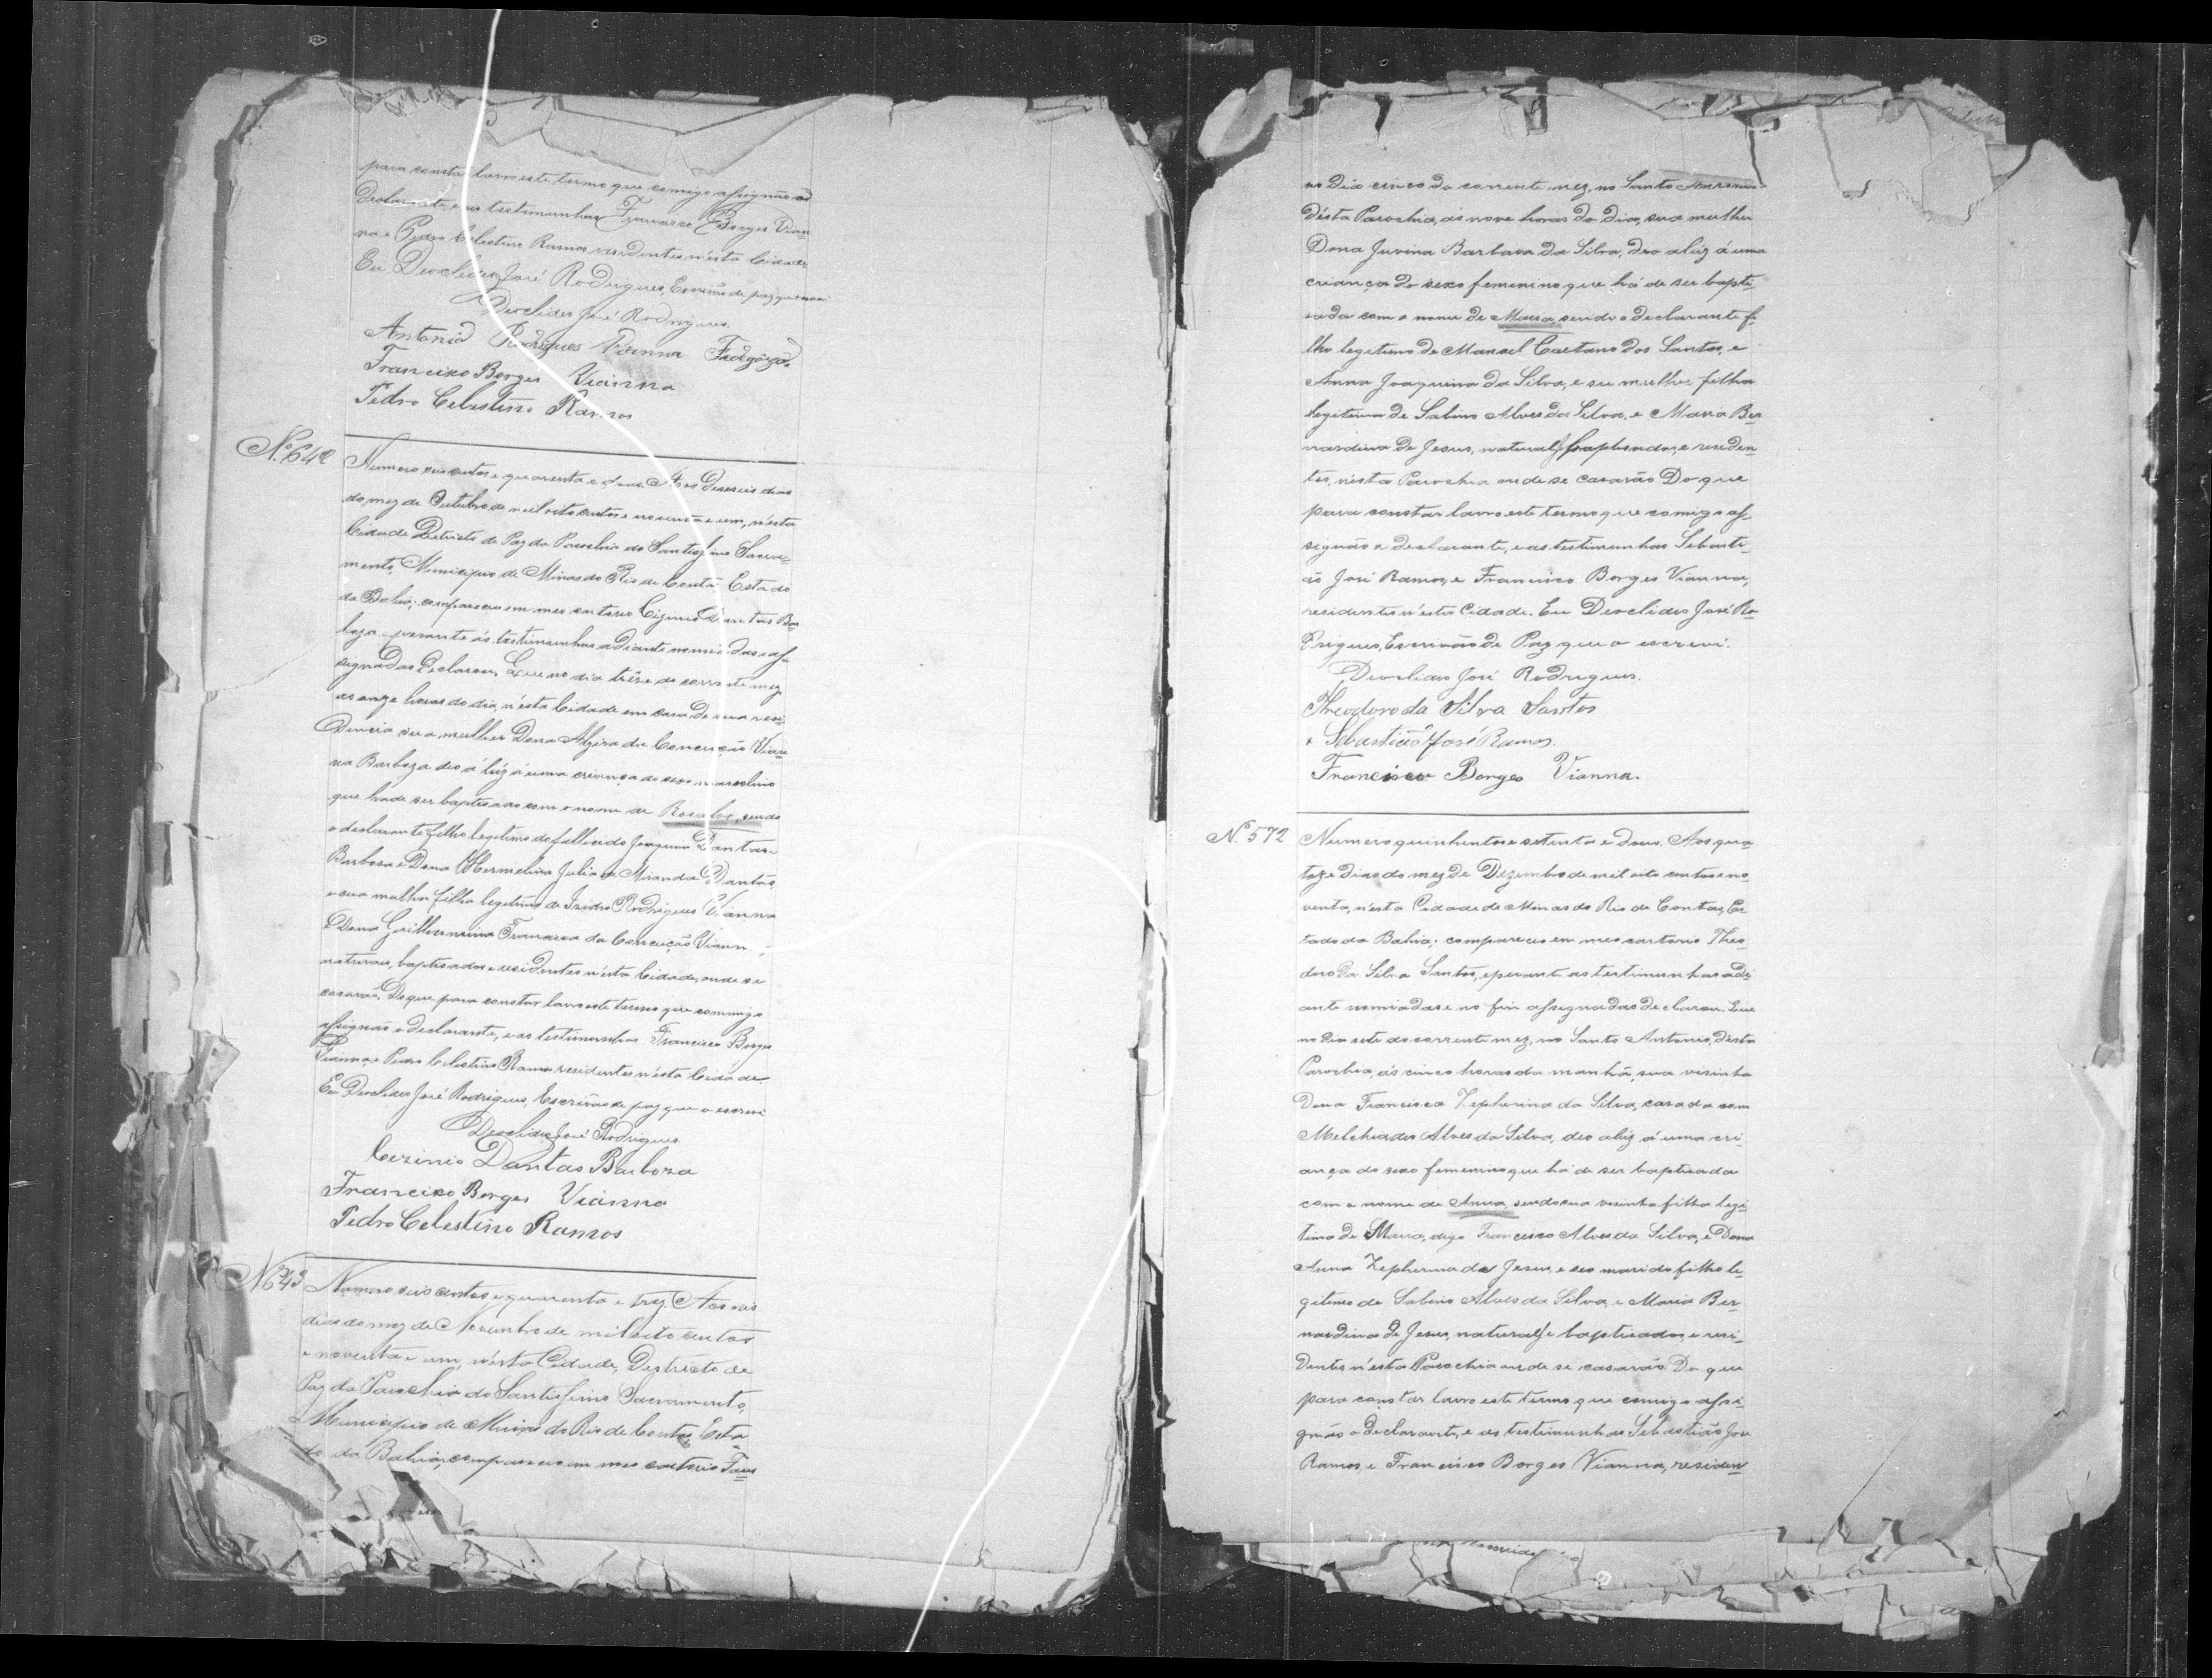 para constar lavro este termo que comigo assignão o
Declarante, e as testimunhas Francisco Borges Vian-
na e Pedro Celestino Ramos residentes n'esta Cidade
Eu Deoclides José Rodrigues, Escrivão de paz que o escrevi
Deoclides José Rodrigues.
Antonio Rodrigues Vianna
Francisco Borges Vianna
Pedro Celestino Ramos
N.º 642
Numero seis centos e quarenta e dous. Aos deseseis dias
do mez de Outubro de mil oito centos e noventa e um, n'esta
Cidade Districto de Paz da Parochia do Santissimo Sacra-
mento, Municipio de Minas do Rio de Contas Estado
da Bahia; compareceu em meu cartorio Cezinio Dantas Bar-
boza e perante ás testimunhas adiante nomiadas e as-
signadas Declarou, Que no dia trese do corrente mez
as onze horas do dia, n'esta Cidade em casa de sua resi-
dencia sua mulher Dona Alzira da Conceição Vian-
na Barboza deo á lúz á uma criança do sexo masculino
que hade ser baptisado com o nome de sendo
o declarante filho legitimo do fallecido Joaquim Dantas
Barbosa e Dona Hermelina Julia de Miranda Dantas,
e sua mulher filha legitima de Izidro Rodrigues Vianna
e Dona Guilhermina Francisca da Conceição Vianna,
naturaes, baptisados e residentes n'esta Cidade, onde se
casarão. Do que para constar lavro este termo que commigo
assignão o declarante, e as testimunhas Francisco Borges
Vianna e Pedro Celestino Ramos residentes n'esta Cidade
Eu Deoclides José Rodrigues, Escrivão de paz que o escrevi
Deoclides José Rodrigues
Cezinio Dantas Barboza
Francisco Borges Vianna
Pedro Celestino Ramos
N.º 643
Numero seis centos e quarenta e trez. Aos seis
dias do mez de Novembro de mil oito centos
e noventa e um, n'esta Cidade, Destricto de
Paz da Parochia do Santissimo Sacramento,
Municipio de Minas do Rio de Contas, Esta-
do da Bahia, compareceu em meu cartorio
no dia cinco do corrente mez, no Santo
d'ésta Parochia, ás nove horas do dia, sua mulher
Dona Juvina Barbara da Silva, deo alúz á uma
criança do sexo femenino que há de ser bapti-
sada com o nome de Maria, sendo o declarante fi-
lho legitimo de Manoel Caetano dos Santos, e
Anna Joaquina da Silva, e sua mulher filha
legitima de Sabino Alves da Silva, e Maria Ber-
nardina de Jesus, naturaes baptisados, e residen-
tes, n'esta Parochia onde se casarão Do que
para constar lavro este termo que comigo as-
signão o declarante, e as testimunhas Sebasti-
ão José Ramos, e Francisco Borges Vianna,
residentes n'esta Cidade. Eu Deoclides José Ro-
drigues, Escrivão de Paz que o escrevi.
Deoclides José Rodrigues.
Theodoro da Silva Santos
Sebastião José Ramos.
Francisco Borges Vianna.
N.º 572
Numero quinhentos e setenta e dous. Aos qua-
torze dias do mez de Dezembro de mil oito centos e no-
venta, n'esta Cidade de Minas do Rio de Contas, Es-
tado da Bahia; compareceu em meu cartorio Theo-
doro da Silva Santos, e perante as testimunhas adi-
ante nomiadas e no fim assignadas declarou. Que
no dia sete do corrente mez, no Santo Antonio, d'esta
Parochia, ás cinco horas da manhã, sua visinha
Dona Francisca Zepherina da Silva, casada com
Melchiades Alves da Silva, deo alúz á uma cri-
ança do sexo femenino que ha de ser baptisada
com o nome de Anna, sendo sua visinha filha legi-
tima de Maria, digo Francisco Alves da Silva, e Dona
Anna Zepherina de Jesus, e seo marido filho le-
gitimo de Sabino Alves da Silva, e Maria Ber-
nardina de Jesus, naturaes e baptisados, e resi-
dentes n'esta Parochia onde se casarão Do que
para constar lavro este termo que comigo assi-
gnão o declarante, e as testimunhas Sebastião José
Ramos, e Francisco Borges Vianna, residen-